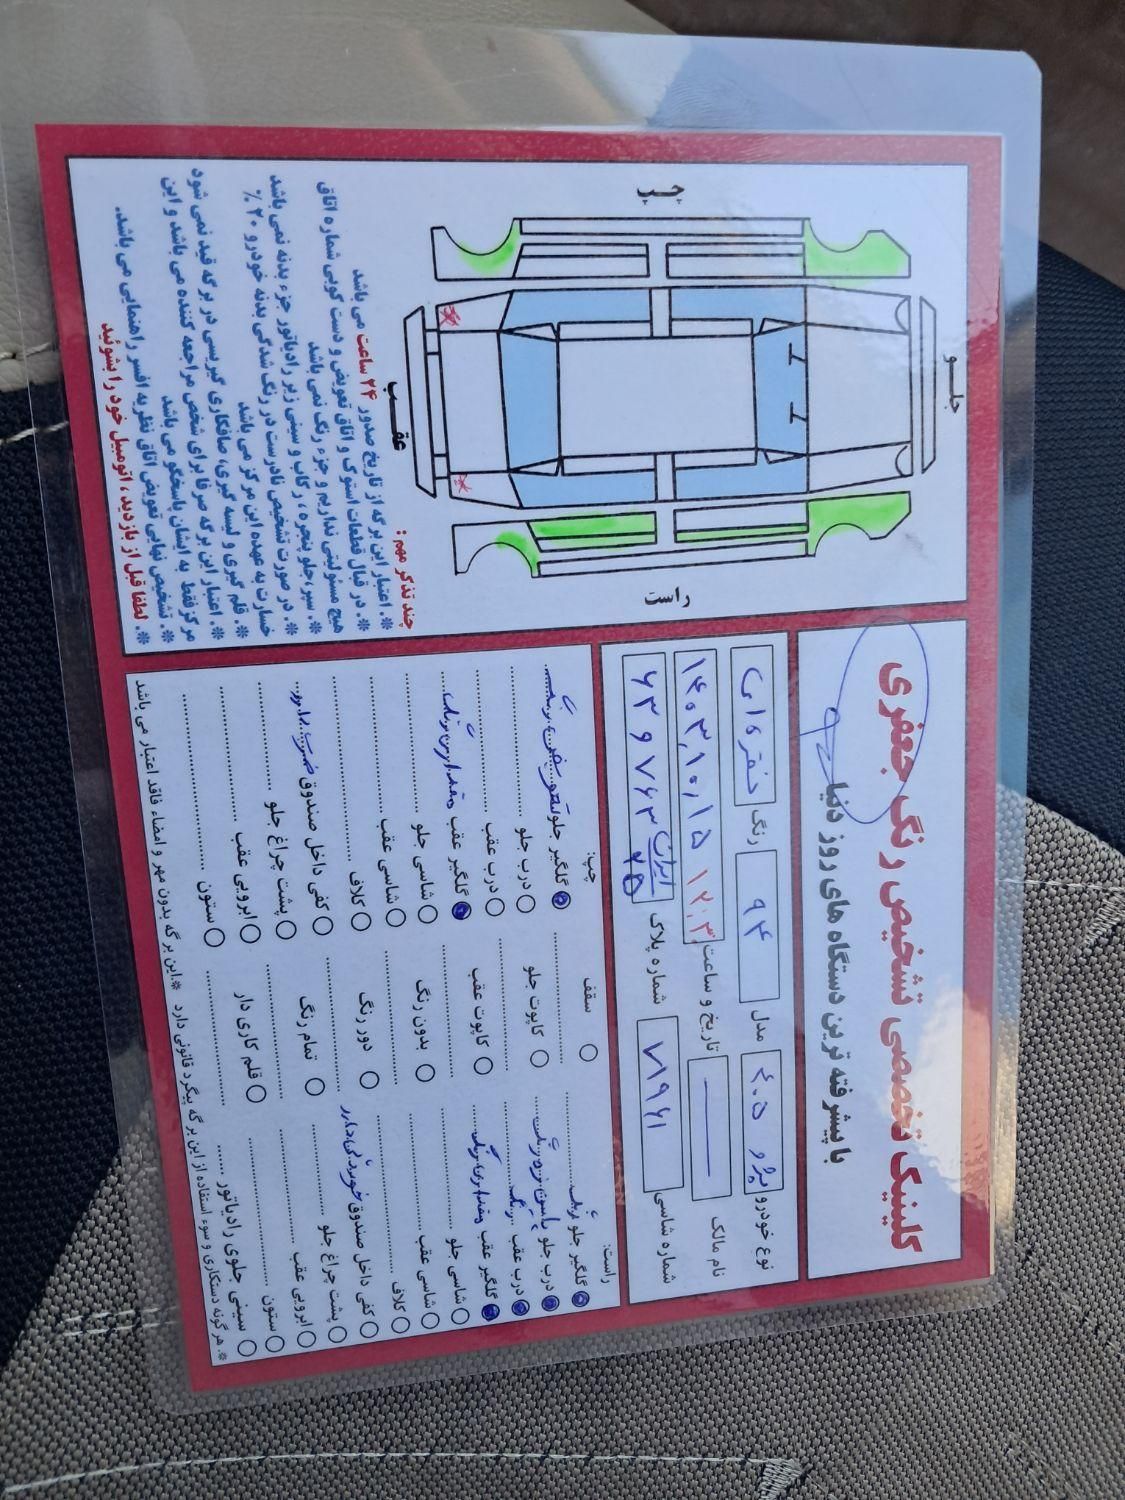 کلینیک تخصصی تشخیص رنگ جعفری
با پیشرفته ترین دستگاه های روز دنیا
نوع خودرو پژو ۴۰۵ مدل ۹۴ رنگ نقره ای
نام مالک تاریخ و ساعت ۱۴۰۳،۱۰،۱۵ ۱۲:۳۰
شماره شاسی ۷۱۹۶۱ شماره پلاک ۶۳ و ۷۶۳ ایران ۲۵
جلــو
چـپ
راست
عقــب
چند تذکر مهم :
❊. اعتبار این برگه از تاریخ صدور ۲۴ ساعت می باشد
❊. در قبال قطعات استوک و اتاق تعویض و دست کوبی شماره اتاق
هیچ مسئولیتی نداریم و جزء رنگ نمی باشد
❊. سپر،جلو پنجره ، رکاب و سینی زیر رادیاتور جزء بدنه نمی باشد
❊. در صورت تشخیص نادرست در رنگ شدگی بدنه خودرو ۲۰ %
خسارت به عهده این مرکز می باشد
❊. قلم گیری و لیسه گیری، صافکاری گیریسی در برگه قید نمی شود
❊. اعتبار این برگه صرفا برای شخص مراجعه کننده می باشد و این
مرکز فقط به ایشان پاسخگو می باشد
❊. تشخیص نهایی تعویض اتاق نظریه افسر راهنمایی می باشد.
❊. لطفا قبل از بازدید ، اتومبیل خود را بشوئید
راست:
گلگیر جلو رنگ
درب جلو پایین زه رنگ
درب عقب رنگ
گلگیر عقب مقداری رنگ
شاسی جلو
شاسی عقب
کلاف
کفی داخل صندوق خوردگی دارد
پشت چراغ جلو
ابرویی عقب
ستون
سینی جلوی رادیاتور
سقف
کاپوت جلو
کاپوت عقب
بدون رنگ
دور رنگ
تمام رنگ
قلم کاری دار
چپ:
گلگیر جلو تعویض، رنگ
درب جلو
درب عقب
گلگیر عقب مقداری رنگ
شاسی جلو
شاسی عقب
کلاف
کفی داخل صندوق ضربه دارد
پشت چراغ جلو
ابرویی عقب
ستون
❊. هر گونه دستکاری و سوء استفاده از این برگه پیگرد قانونی دارد ❊. این برگه بدون مهر و امضاء فاقد اعتبار می باشد